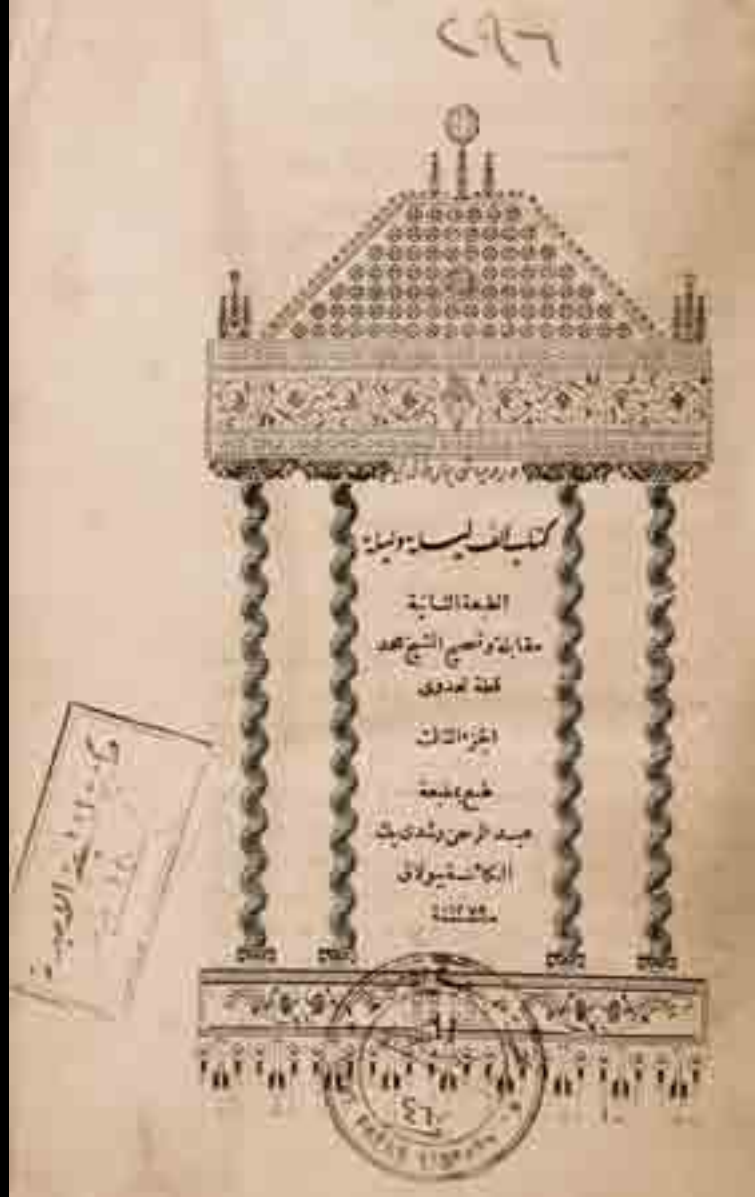 كتاب ألف ليلة وليلة
الطبعة الثانية
مقابلة وتصحيح الشيخ محمد
قطة العدوى
الجزء الثالث
طبع بمطبعة
عبد الرحمن رشدى بك
الكائنة ببولاق
سنة ١٢٧٩
الأدبية
٤٦
LIBRARY